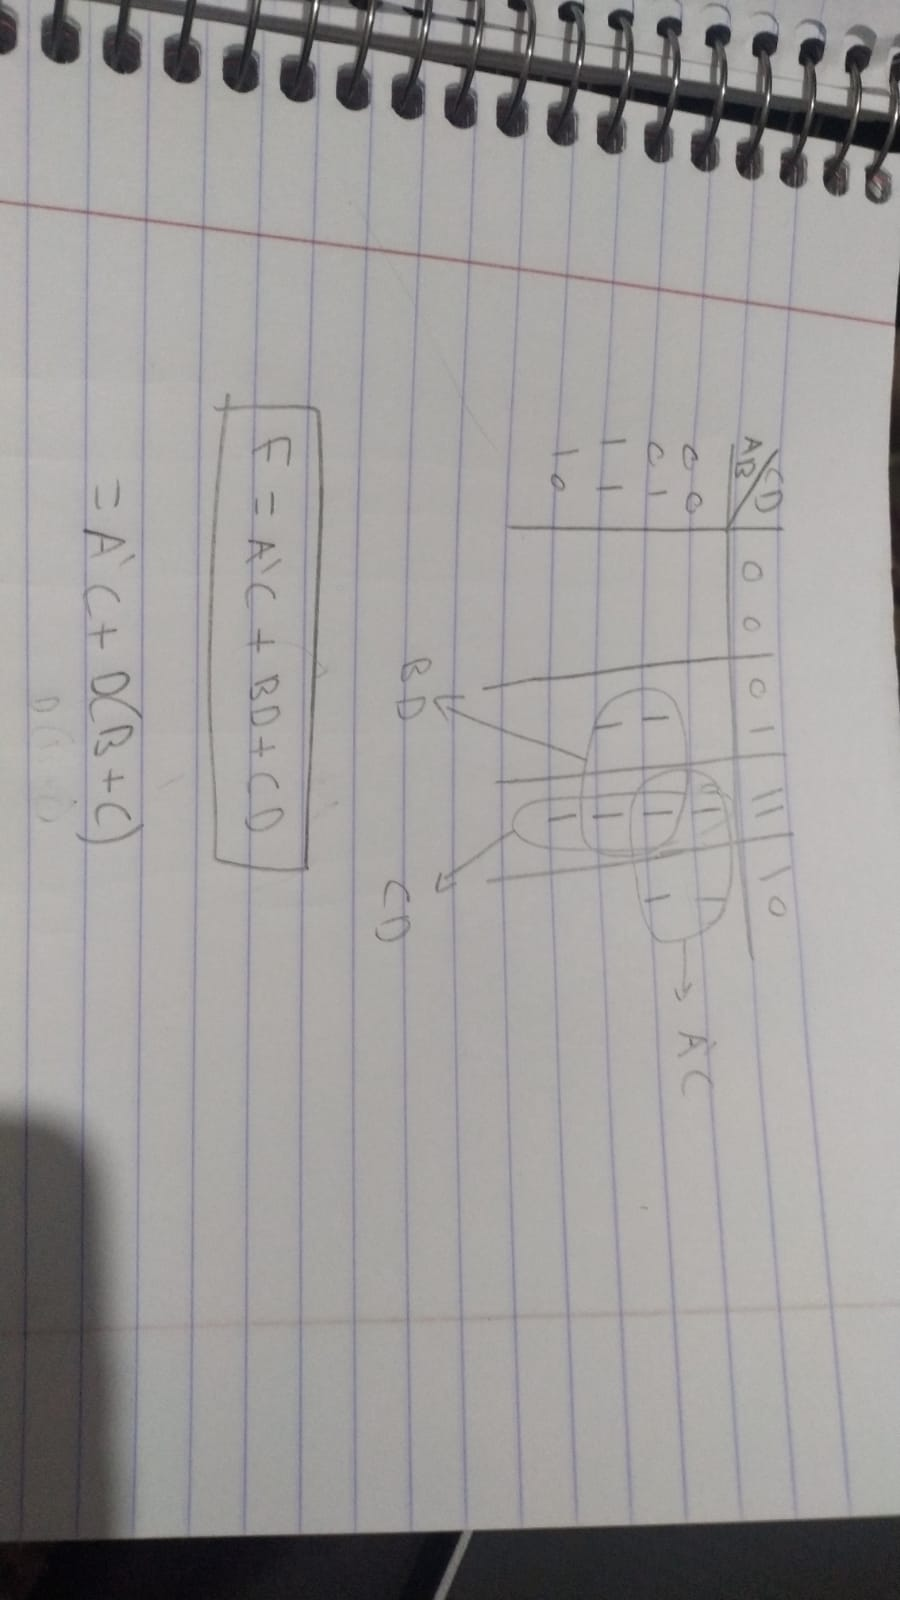 AB\CD 00 01 11 10
00 1 1
01 1 1 1 → A'C
11 1 1
10 1
BD CD
F = A'C + BD + CD
= A'C + D(B+C)